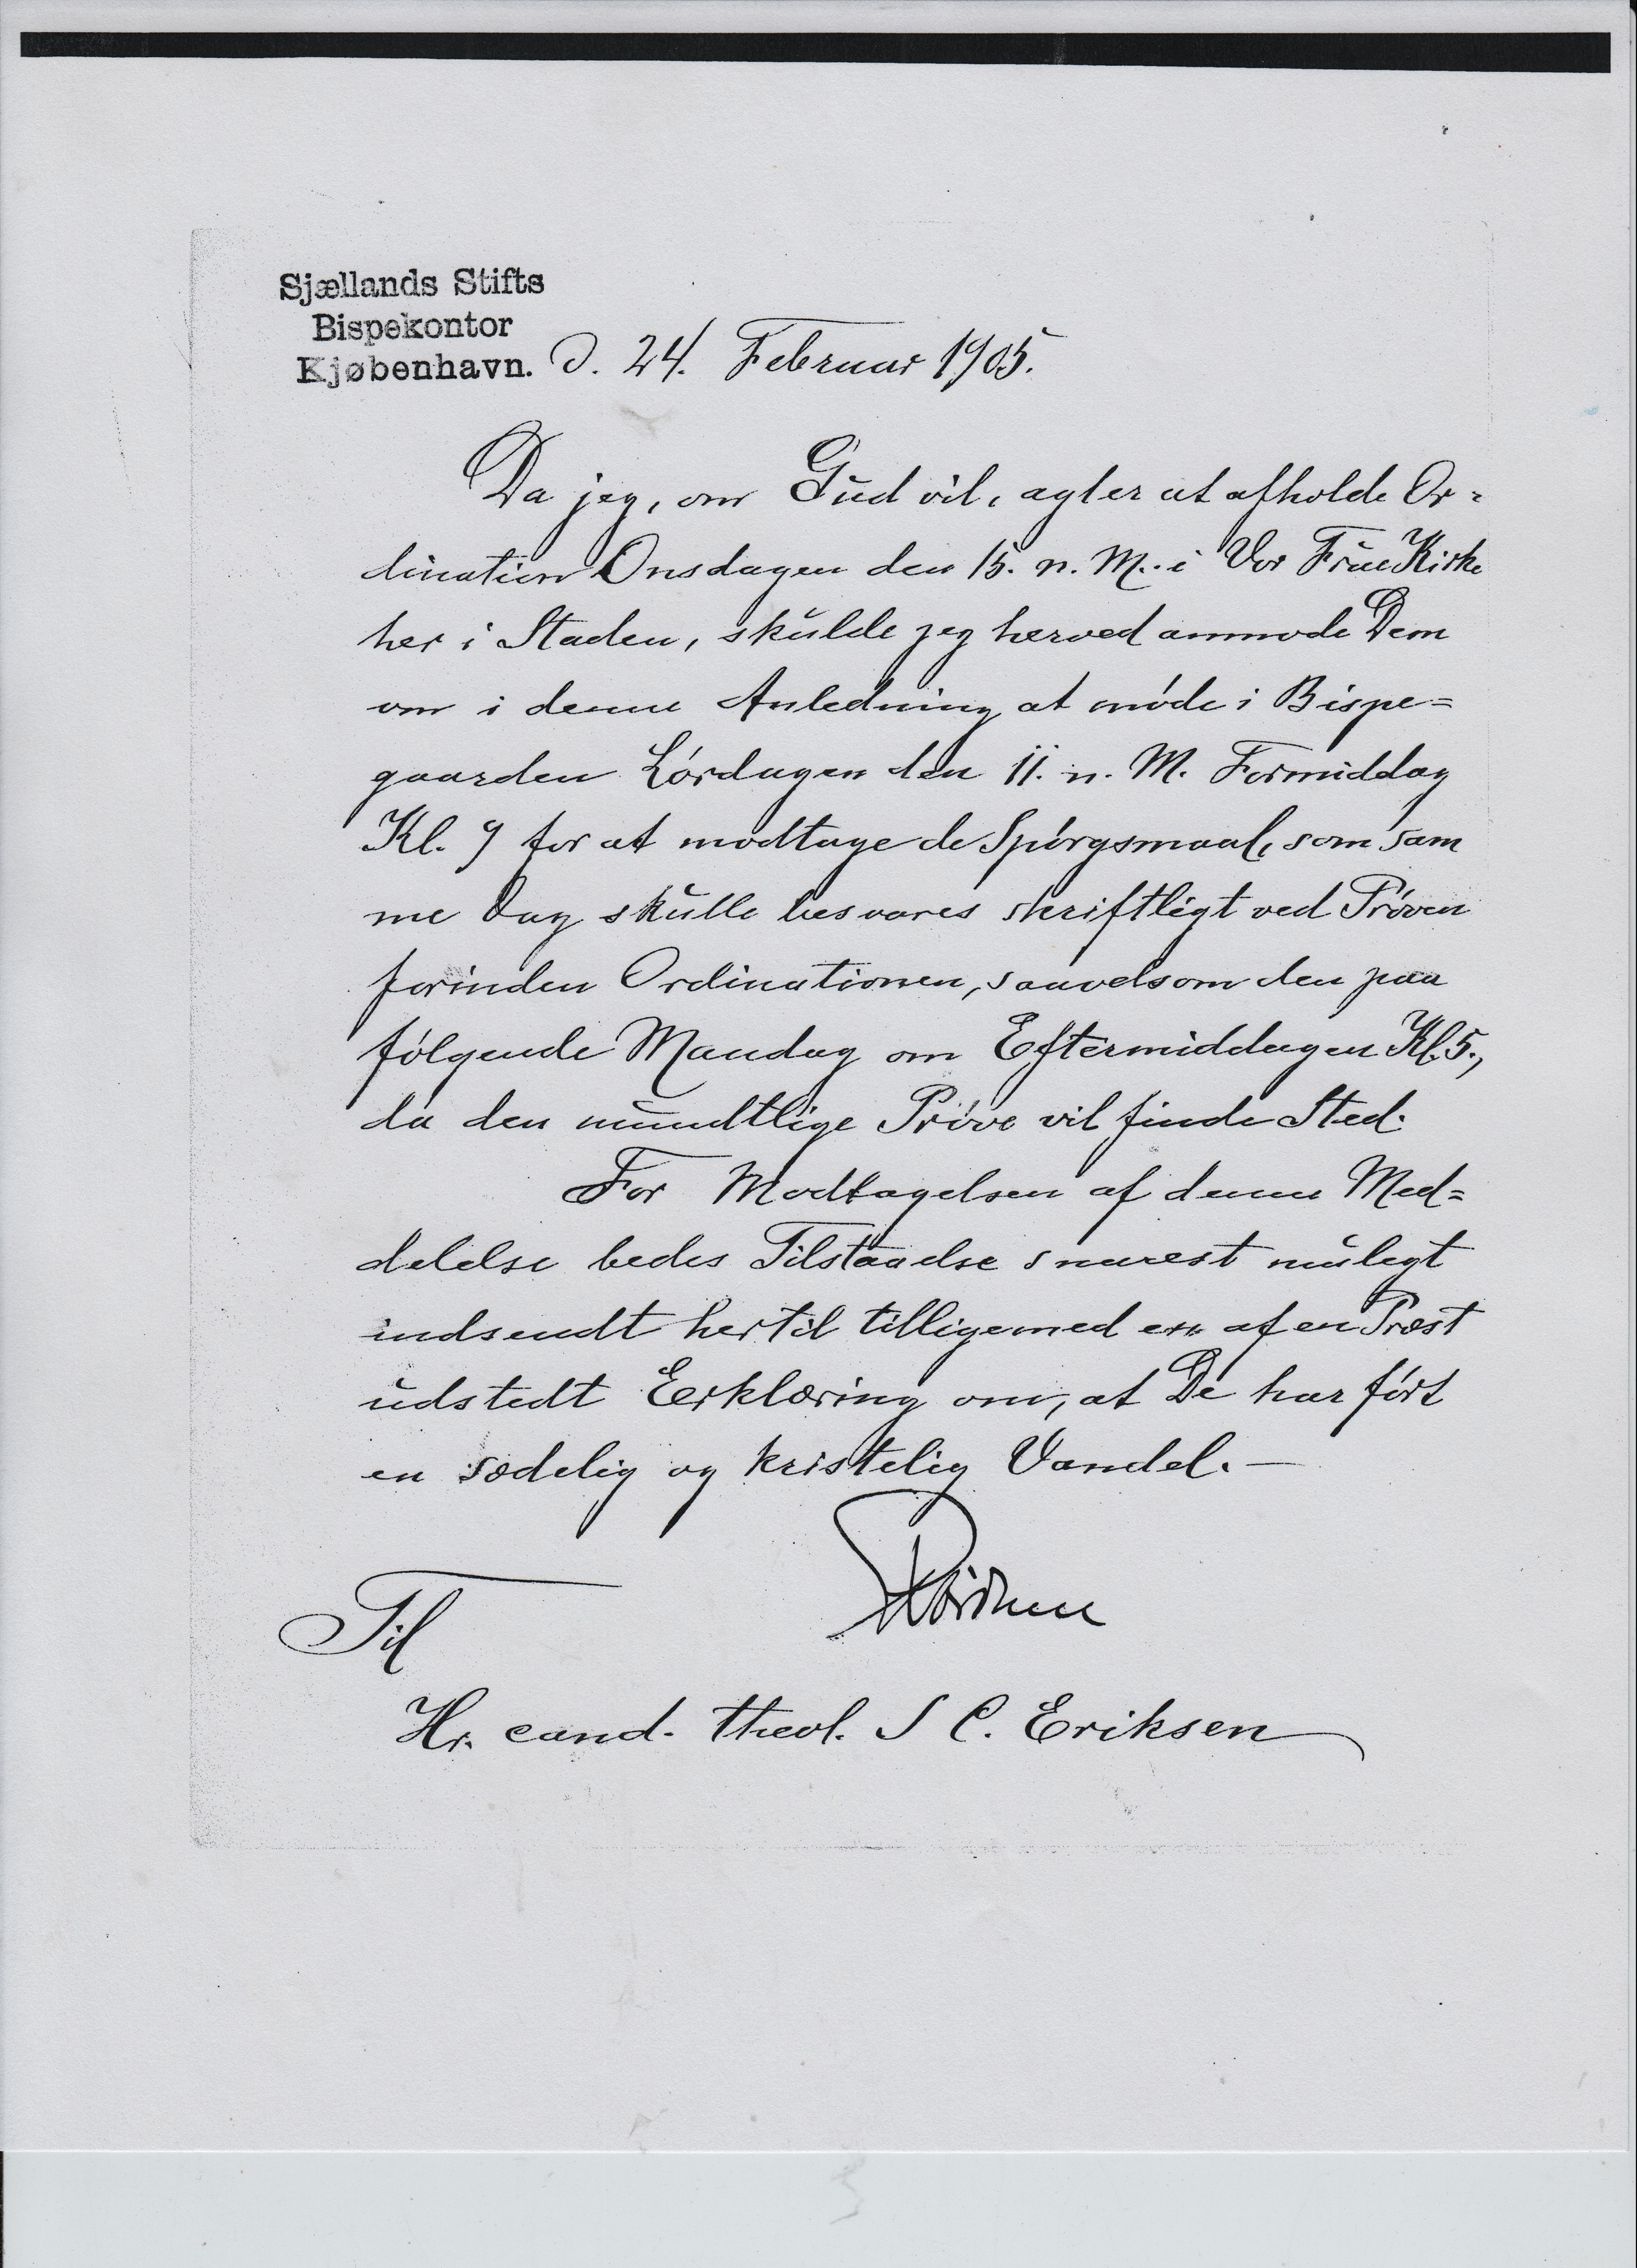 Sjællands Stifts
Bispekontor
Kjøbenhavn. d. 24. Februar 1905.
Da jeg, om Gud vil, agter at afholde Or=
dination Onsdagen den 15. n. M. i Vor Frue Kirke
her i Staden, skulde jeg herved anmode Dem
om i denne Anledning at møde i Bispe=
gaarden Lørdagen den 11. n. M. Formiddag
Kl. 9 for at modtage de Spørgsmaal, som sam
me Dag skulle besvares skriftligt ved Prøven
forinden Ordinationen, saavelsom den paa
følgende Mandag om Eftermiddagen Kl. 5.,
da den mundtlige Prøve vil finde Sted.
For Modtagelsen af denne Med=
delelse bedes Tilstaaelse snarest muligt
indsendt hertil tilligemed en af en Præst
udstedt Erklæring om, at De har ført
en sædelig og kristelig Vandel. —
Til
Hr. cand. theol. S C. Eriksen